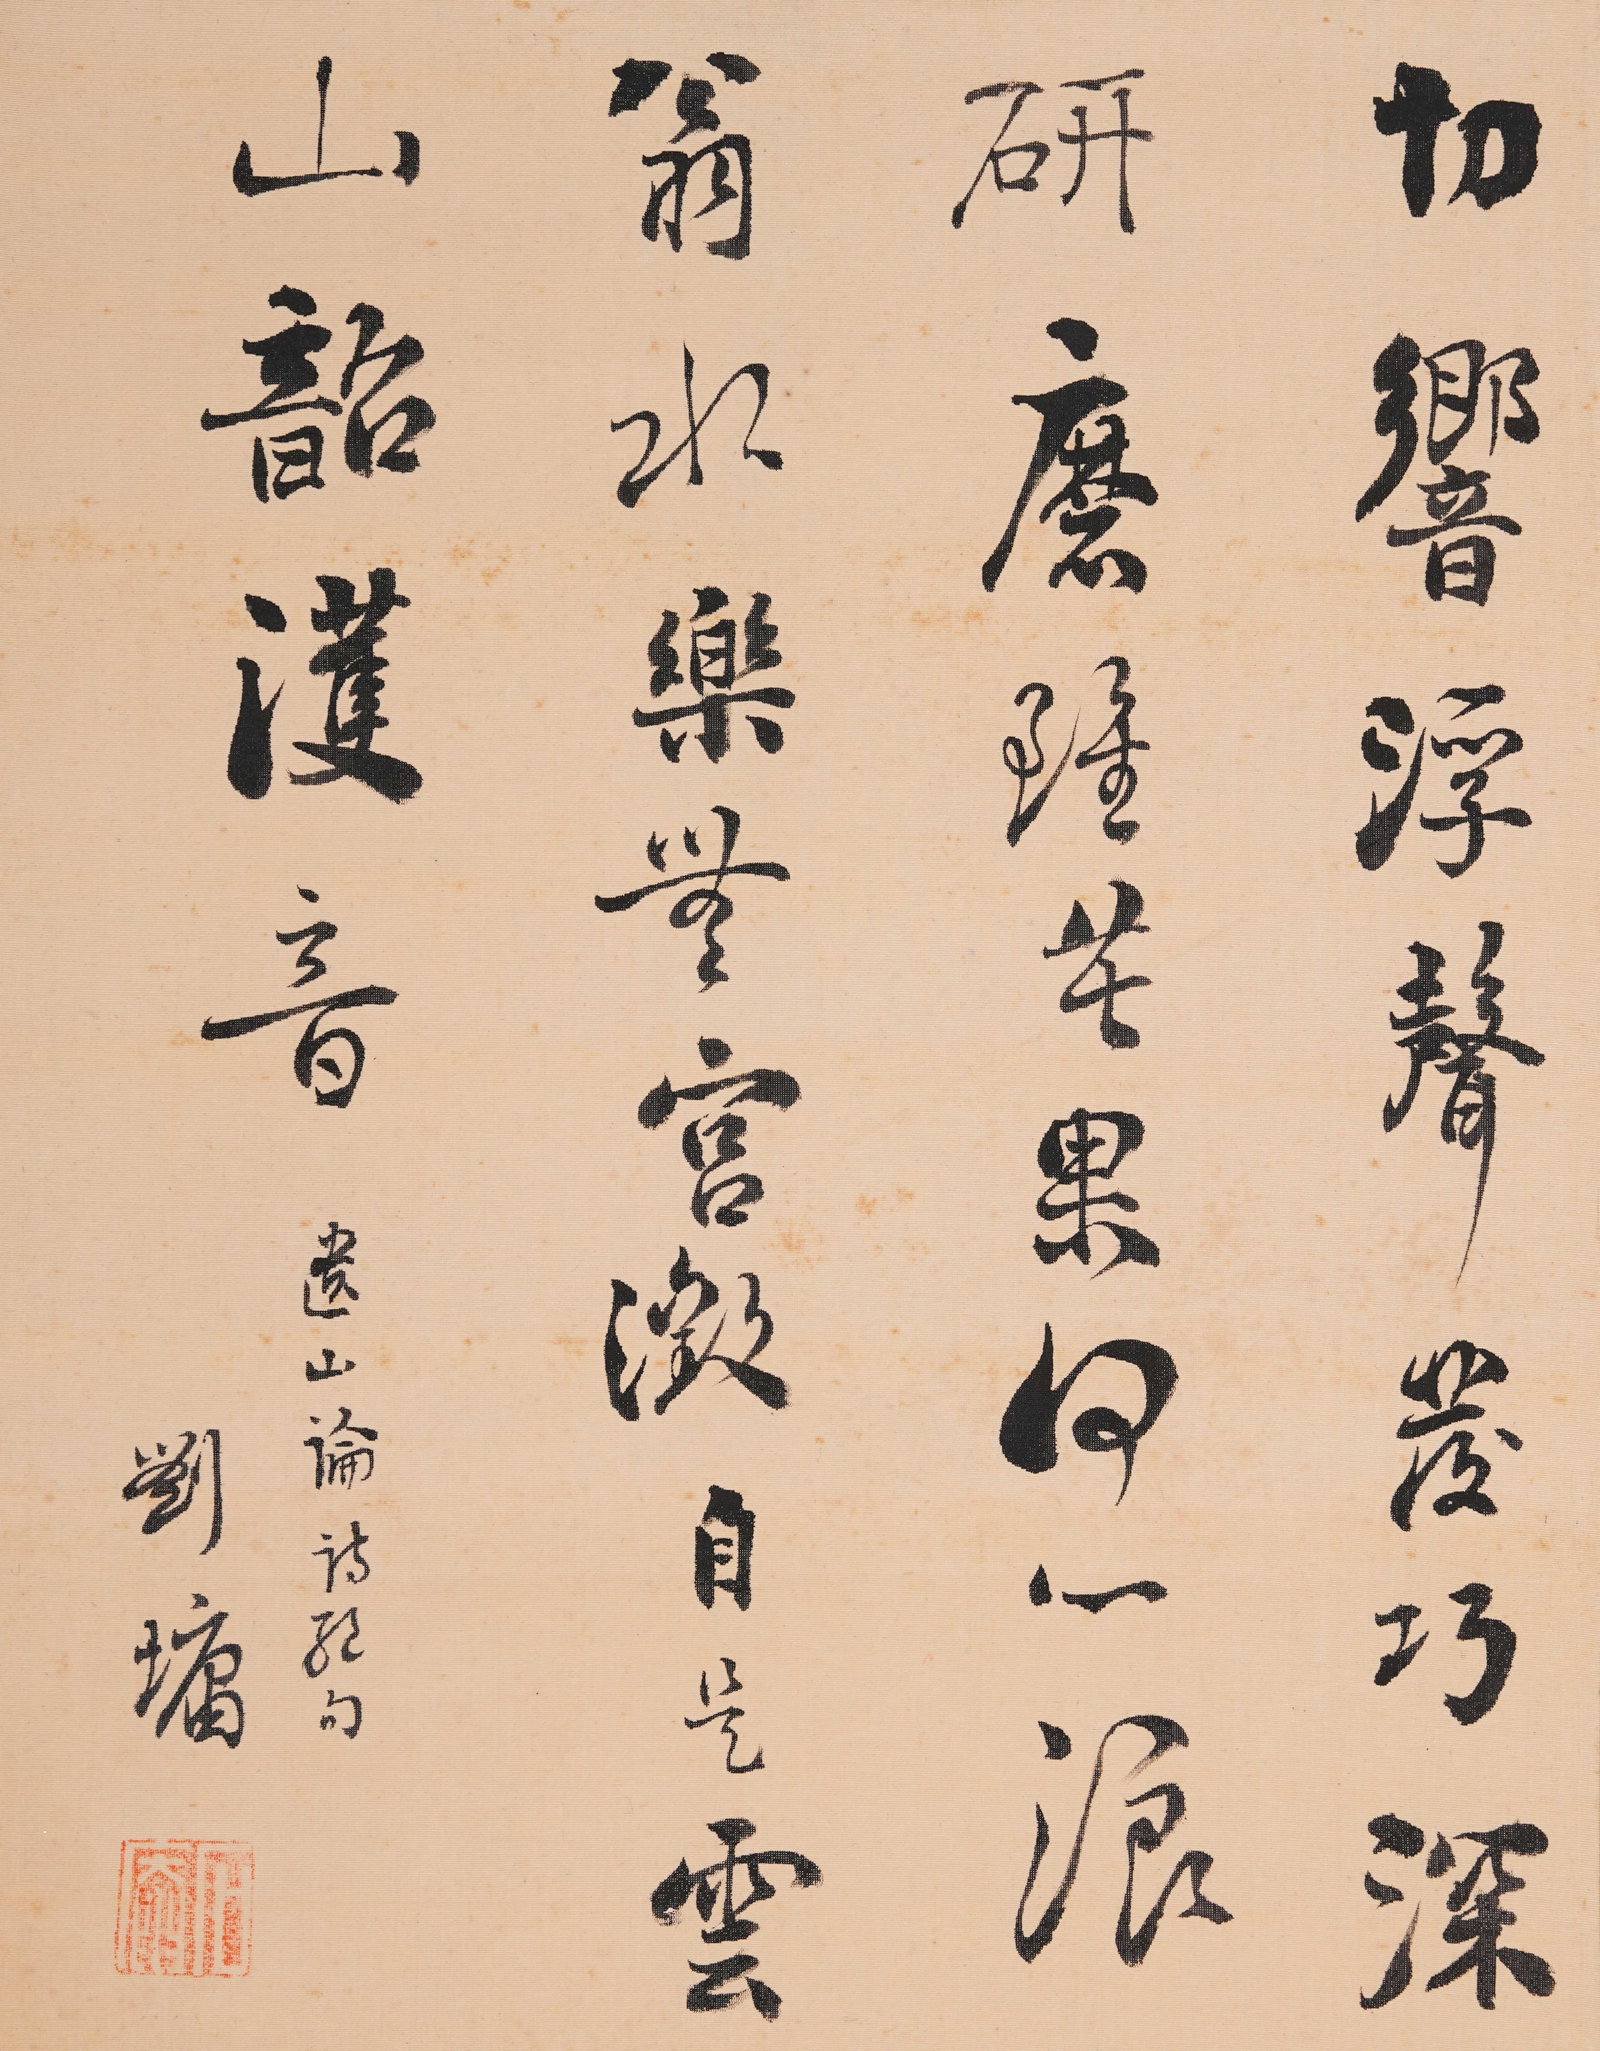 切響浮聲發巧深
研磨雖苦果何心浪
翁水樂無宮徵自是雲
山韶濩音 遺山論詩絕句
劉墉